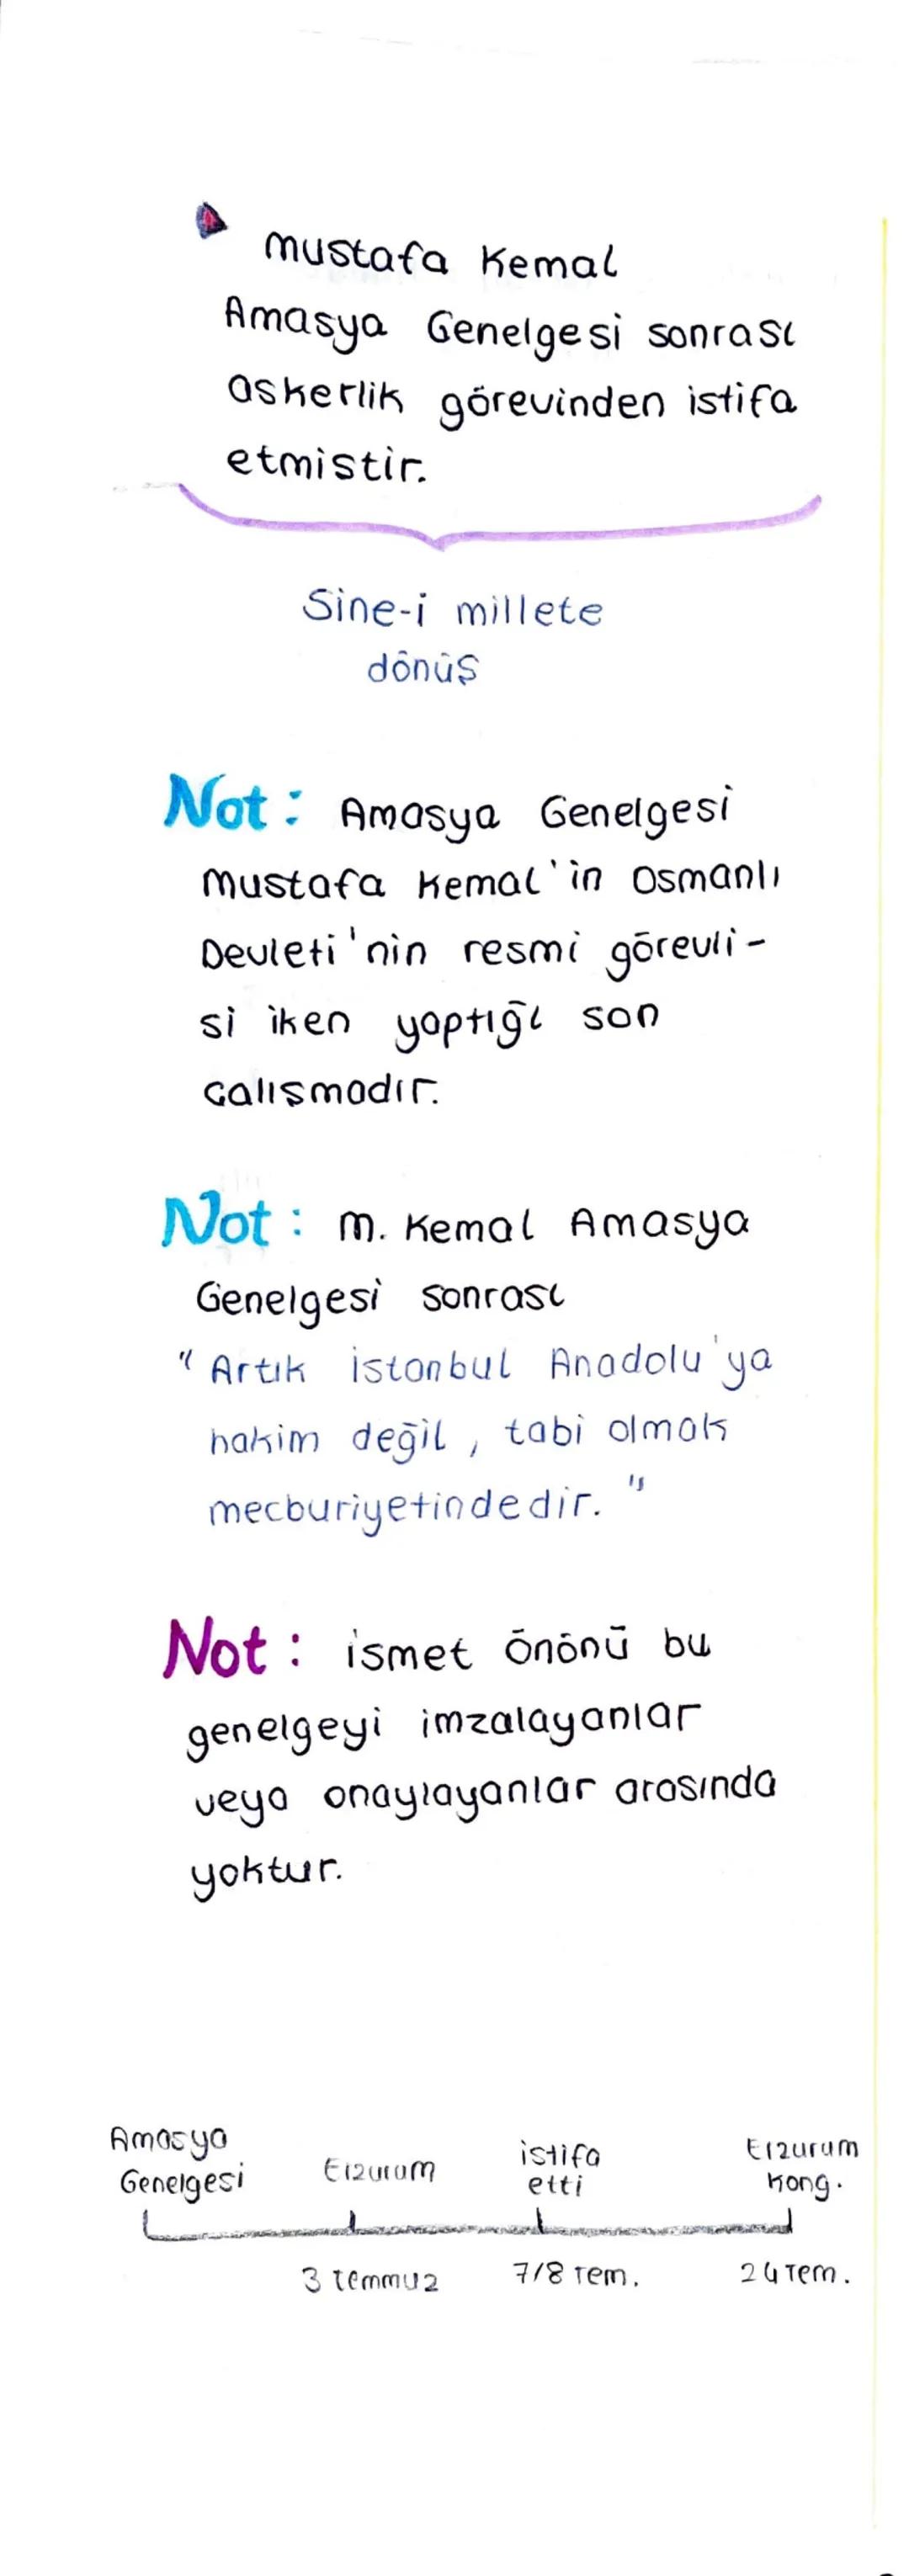 Mustafa Kemal
Amasya Genelgesi sonrası
askerlik görevinden istifa
etmistir.
Sine-i millete
dönüş
Not: Amasya Genelgesi
Mustafa Kemal'in Osmanlı
Devleti'nin resmi görevli-
si iken yaptığı son
calışmadır.
Not: M. Kemal Amasya
Genelgesi sonrası
"Artık istanbul Anadolu'ya
hakim değil, tabi olmak
mecburiyetindedir."
Not: ismet Önönü bu
genelgeyi imzalayanlar
veya onaylayanlar arasında
yoktur.
Amasya
Genelgesi
Erzurum
istifa
etti
Erzurum
Kong.
3 temmuz
7/8 Tem.
24 Tem.